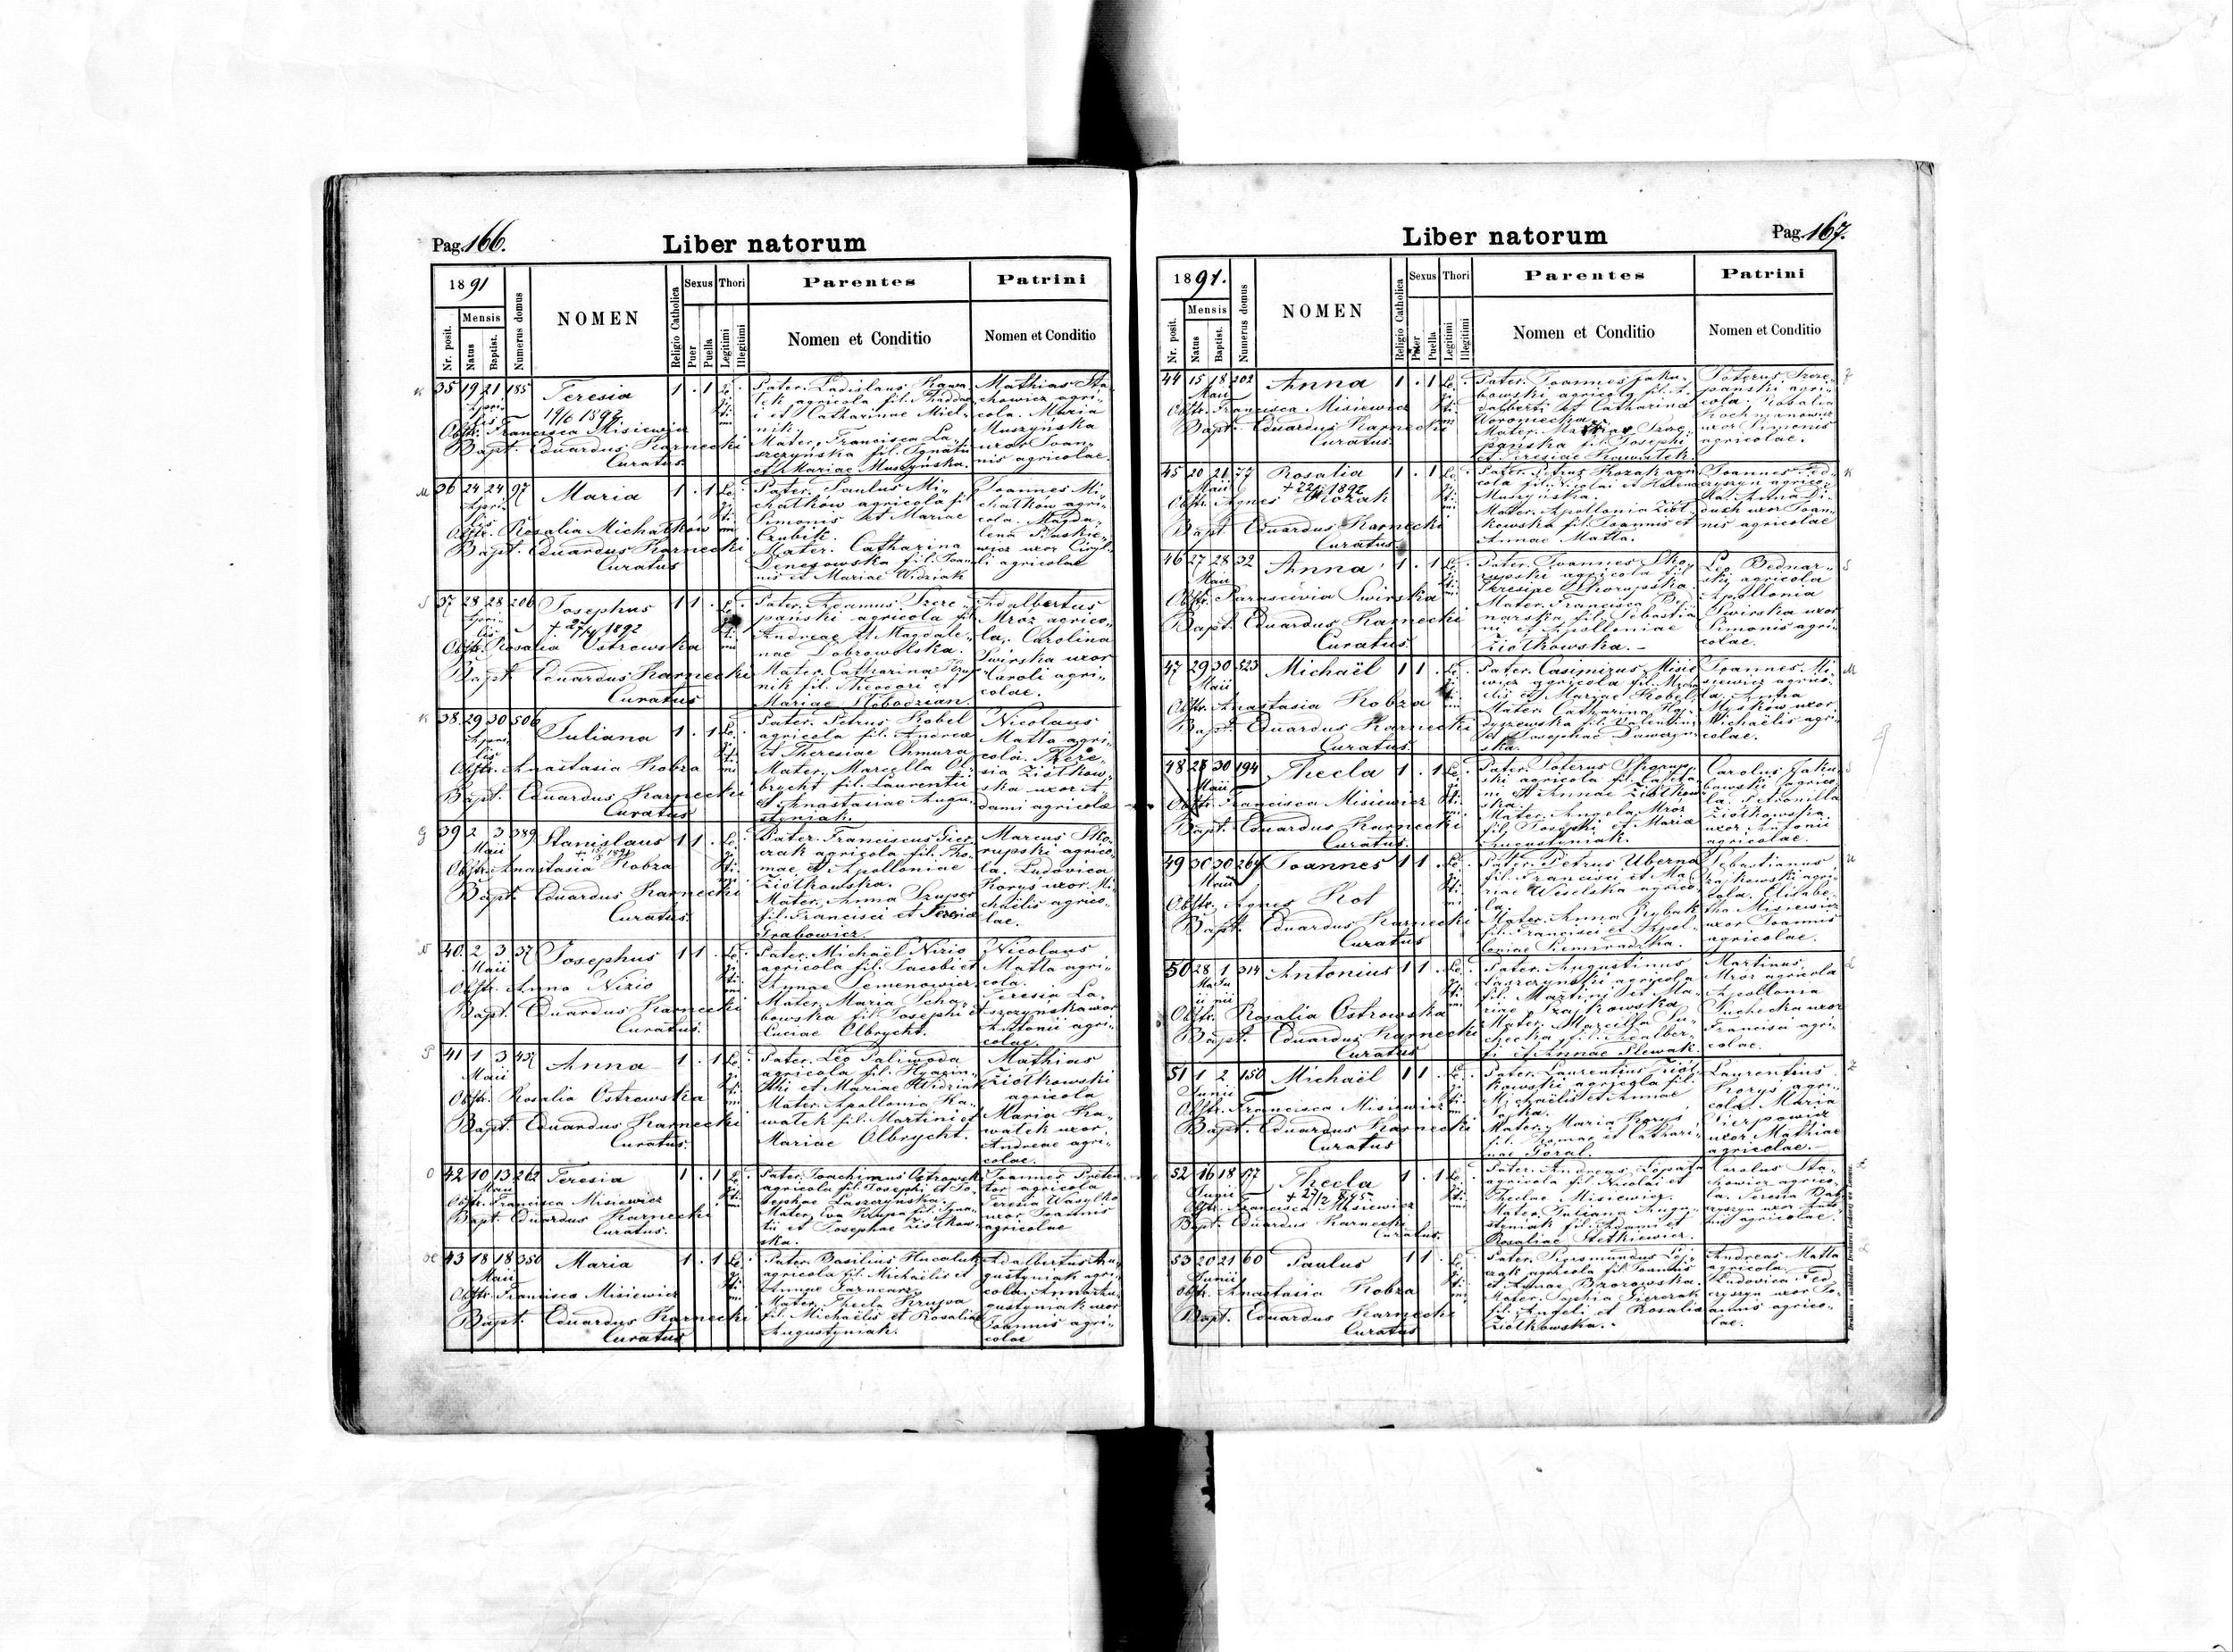 Pag. 166.
Liber natorum
1891
Mensis
Nr. posit.
Natus
Baptist.
Numerus domus
NOMEN
Religio Catholica
Sexus
Puer
Puella
Thori
Legitimi
Illegitimi
Parentes
Nomen et Conditio
Patrini
Nomen et Conditio
K 35 19 21 185 Teresia 1 . 1
Aprilis
Obstr. Francisca Misiewicz
Bapt. Eduardus Karnecki
Curatus
Pater. Ladislaus Kawa-
tek agricola fil. Thaddae
i et Catharinae Miel-
nik.
Mater. Francisca La-
szczyńska fil. Ignatii
et Mariae Muszyńska.
Mathias Sta-
chowicz agri-
cola. Maria
Muszyńska
uxor Joan-
nis agricolae.
M 36 24 24 97 Maria 1 . 1
Aprilis
Obstr. Rosalia Michałków
Bapt. Eduardus Karnecki
Curatus
Pater. Paulus Mi-
chałków agricola fil
Simonis et Mariae
Czubik.
Mater. Catharina
Denegowska fil. Joan-
nis et Mariae Widziak
Joannes Mi-
chałków agri-
cola. Magda-
lena
uxor Ciryl-
li agricolae
S 37 28 28 206 Josephus 1 1 .
Aprilis
Obstr. Rosalia Ostrowska
Bapt. Eduardus Karnecki
Curatus
Pater. Adamus Szcze-
pański agricola fil
Andreae et Magdale-
nae Dobrowolska.
Mater. Catharina
nik fil. Theodori et
Mariae Słobodzian.
Adalbertus
Mroz agrico-
la. Carolina
Swirska uxor
Caroli agri-
colae.
K 38. 29 30 506 Juliana 1 . 1
Aprilis
Obstr. Anastasia Kobza
Bapt. Eduardus Karnecki
Curatus
Pater. Petrus Kobel
agricola fil. Andreae
et Theresiae Chmura
Mater. Marcella Ol-
brycht fil. Laurentii
et Anastasiae Augu-
styniak.
Nicolaus
Matla agri-
cola. There-
sia Ziółkow-
ska uxor A-
dami agricolae
G 39 2 3 389 Stanislaus 1 1 .
Maii
Obstr. Anastasia Kobza
Bapt. Eduardus Karnecki
Curatus
Pater. Franciscus Gier-
czak agricola fil. Tho-
mae et Apolloniae
Ziółkowska.
Mater. Anna Szuper
fil. Francisci et Teresiae
Grabowicz.
Marcus Sko-
rupski agrico-
la. Ludovica
Korys uxor Mi-
chaëlis agrico-
lae.
N 40. 2 3 37 Josephus 1 1 .
Maii
Obstr. Anna Nizio
Bapt. Eduardus Karnecki
Curatus.
Pater. Michaël Nizio
agricola fil. Jacobi et
Annae Semenowicz.
Mater. Maria Scha-
bowska fil. Josephi et
Luciae Olbrycht.
Nicolaus
Matla agri-
cola.
Teresia La-
szczyńska uxor
Antonii agri-
colae.
P 41 1 3 437 Anna 1 . 1
Maii
Obstr. Rosalia Ostrowska
Bapt. Eduardus Karnecki
Curatus.
Pater. Leo Paliwoda
agricola fil. Hyacin-
thi et Mariae Widziak
Mater. Apollonia Ka-
watek fil. Martini et
Mariae Olbrycht.
Mathias
Ziółkowski
agricola
Maria Ka-
watek uxor
Andreae agri-
colae.
O 42 10 13 262 Teresia 1 . 1
Maii
Obstr. Francisca Misiewicz
Bapt. Eduardus Karnecki
Curatus.
Pater. Joachimus Ostrowski
agricola fil. Josephi et Jo-
sephae Laszczyńska.
Mater. Eva Krupa fil. Igna-
tii et Josephae Ziółkow-
ska.
Joannes Preten-
tor agricola
Teresia Wasylko
uxor Joannis
agricolae
H 43 18 18 350 Maria 1 . 1
Maii
Obstr. Francisca Misiewicz
Bapt. Eduardus Karnecki
Curatus
Pater. Basilius Hucaluk
agricola fil. Michaëlis et
Annae Garncarz.
Mater. Thecla Krupa
fil. Michaëlis et Rosaliae
Augustyniak.
Adalbertus Au-
gustyniak agri-
cola. Anna Au-
gustyniak uxor
Joannis agri-
colae
Pag. 167.
Liber natorum
1891.
Mensis
Nr. posit.
Natus
Baptist.
Numerus domus
NOMEN
Religio Catholica
Sexus
Puer
Puella
Thori
Legitimi
Illegitimi
Parentes
Nomen et Conditio
Patrini
Nomen et Conditio
44 15 18 202 Anna 1 . 1
Maii
Obstr. Francisca Misiewicz
Bapt. Eduardus Karnecki
Curatus.
Pater. Joannes Jaku-
bowski agricola fil. A-
dalberti et Catharina
Woroniecka.
Mater. Szcze-
pańska fil. Josephi
et Teresiae Kawatek.
Poterus Szcze-
pański agri-
cola. Rosalia
Kochmanowicz
uxor Simonis
agricolae.
45 20 21 77 Rosalia 1 . 1 K
Maii
Obstr. Agnes Kozak
Bapt. Eduardus Karnecki
Curatus.
Pater. Petrus Kozak agri-
cola fil. Nicolai et Helena
Muszyńska.
Mater. Apollonia Ziół-
kowska fil. Joannis et
Annae Matla.
Joannes Fed-
czyszyn agrico-
la. Anna Di-
duch uxor Joan-
nis agricolae
46 27 28 32 Anna 1 . 1 S
Maii
Obstr. Parascevia Swirska
Bapt. Eduardus Karnecki
Curatus.
Pater. Joannes Sko-
rupski agricola fil
Teresiae Skorupska.
Mater. Francisca Bed-
narska fil. Sebastia-
ni et Apolloniae
Ziółkowska.
Leo Bednar-
ski agricola
Apollonia
Swirska uxor
Simonis agri-
colae.
47 29 30 523 Michaël 1 1 . M
Maii
Obstr. Anastasia Kobza
Bapt. Eduardus Karnecki
Curatus.
Pater. Casimirus Misie-
wicz agricola fil. Micha-
elis et Mariae Kobel.
Mater. Catharina
fil. Valentini
et Josephae Dawczyn-
ska.
Joannes Mi-
siewicz agrico-
la. Anna
Myśków uxor
Michaëlis agri-
colae.
48 28 30 194 Thecla 1 . 1 S
Maii
Obstr. Francisca Misiewicz
Bapt. Eduardus Karnecki
Curatus.
Pater. Poterus Skorup-
ski agricola fil. Cajeta-
ni et Annae Ziółkow-
ska.
Mater. Angela Mroz
fil. Josephi et Maria
Augustyniak.
Carolus Jaku-
bowski agrico-
la. Petronilla
Ziółkowska
uxor Antonii
agricolae.
49 30 30 264 Joannes 1 1 . U
Maii
Obstr. Agnes Kot
Bapt. Eduardus Karnecki
Curatus
Pater. Petrus Uberna
fil. Francisci et Ma-
riae Weselska agrico-
la.
Mater. Anna Rybak
fil. Francisci et Apol-
loniae Siemiradzka.
Sebastianus
Szajkowski agri-
cola. Elisabe-
tha Misiewicz
uxor Joannis
agricolae.
50 28 1 314 Antonius 1 1 . L
Maii Junii
Obstr. Rosalia Ostrowska
Bapt. Eduardus Karnecki
Curatus
Pater. Augustinus
Laszczyński agricola
fil. Martini et Ma-
riae Szajkowska
Mater. Marcella Su-
checka fil. Adalber-
ti et Annae Slewak.
Martinus
Mroz agricola
Apollonia
Suchecka uxor
Francisci agri-
colae.
51 1 2 150 Michaël 1 1 . Z
Junii
Obstr. Francisca Misiewicz
Bapt. Eduardus Karnecki
Curatus
Pater. Laurentius Ziół-
kowski agricola fil.
Michaëlis et Annae
Mater. Maria Koryś
fil. Thomae et Cathari-
nae Goral.
Laurentius
Koryś agri-
cola. Maria
Sierpowicz
uxor Mathiae
agricolae.
52 16 18 177 Thecla 1 . 1 L
Junii
Obstr. Francisca Misiewicz
Bapt. Eduardus Karnecki
Curatus.
Pater. Andreas Łopata
agricola fil. Nicolai et
Theclae Misiewicz.
Mater. Juliana Augu-
styniak fil. Adami et
Rosaliae Stetkiewicz.
Carolus Sta-
chowicz agrico-
la. Teresia
uxor
agricolae.
53 20 21 60 Paulus 1 1 . L
Junii
Obstr. Anastasia Kobza
Bapt. Eduardus Karnecki
Curatus
Pater. Sigismundus
agricola fil. Joannis
et Annae Brozowska.
Mater. Sophia Gierczak
fil. Angeli et Rosalia
Ziółkowska.
Andreas Matla
agricola.
Ludovica Fed-
czyszyn uxor Jo-
annis agrico-
lae.